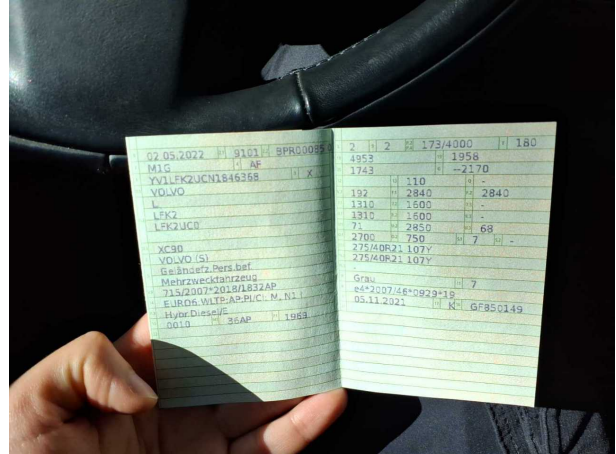 02.05.2022 9101 BPR00085
M1G AF
YV1LFK2UCN1846368 X
VOLVO
L
LFK2
LFK2UC0
XC90
VOLVO (S)
Geländefz.Pers.bef.
Mehrzweckfahrzeug
715/2007*2018/1832AP
EURO6;WLTP;AP;PI/CI; M, N1 I
Hybr.Diesel/E
0010 36AP 1969
2 2 173/4000 180
4953 1958
1743 --2170
110 -
192 2840 2840
1310 1600 -
1310 1600 -
71 2850 68
2700 750 7 -
275/40R21 107Y
275/40R21 107Y
-
Grau 7
e4*2007/46*0929*19
05.11.2021 K GF850149